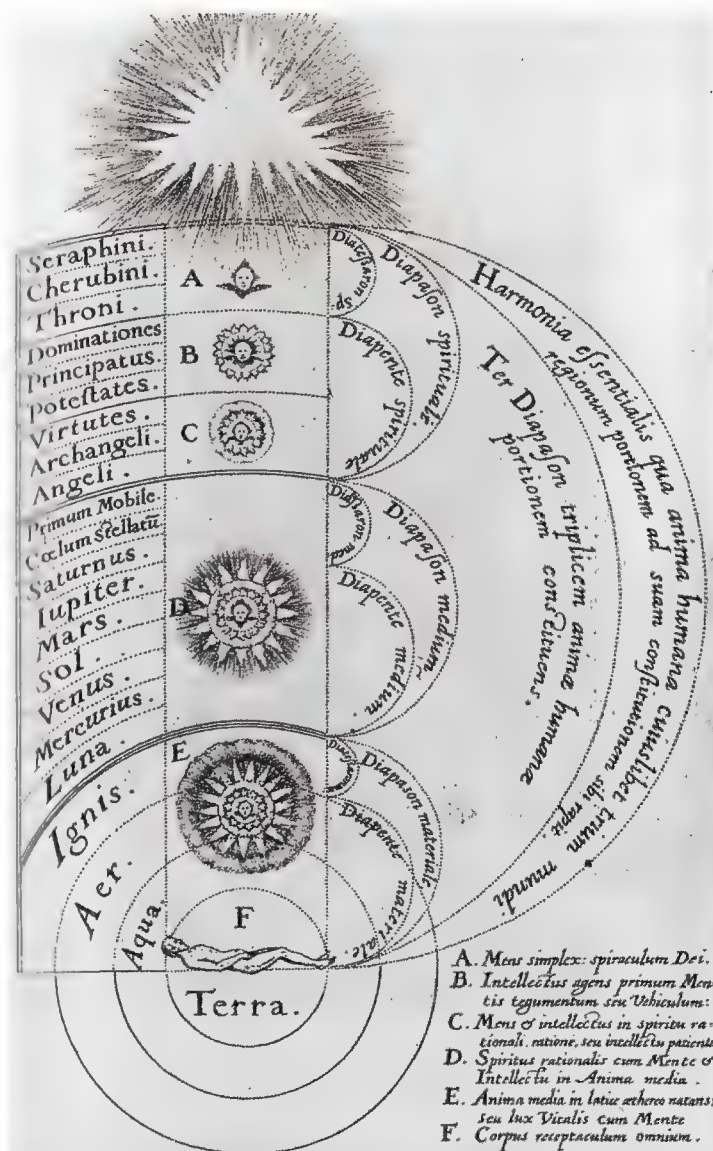 Seraphini.
Cherubini.
Throni.
Dominationes
Principatus.
Potestates.
Virtutes.
Archangeli.
Angeli.
Primum Mobile.
Cœlum Stellatū
Saturnus.
Iupiter.
Mars.
Sol.
Venus.
Mercurius.
Luna.
Ignis.
Aer.
Aqua.
Terra.
A
B
C
D
E
F
Diatessaron sp
Diapason spirituale.
Diapente spirituale
med
Diapason medium
Diapente medium.
Diapason materiale
Diapente materiale.
Ter Diapason triplicem animæ humanæ
portionem constituens.
Harmonia essentialis qua anima humana cuiuslibet trium mundi
regionum portionem ad suam constitutionem sibi rapit.
A. Mens simplex: spiraculum Dei.
B. Intellectus agens primum Men
tis tegumentum seu Vehiculum:
C. Mens & intellectus in spiritu ra=
tionali, ratione, seu intellectu patiente
D. Spiritus rationalis cum Mente &
Intellectu in Anima media.
E. Anima media in latice æthereo natans;
seu lux Vitalis cum Mente
F. Corpus receptaculum omnium.